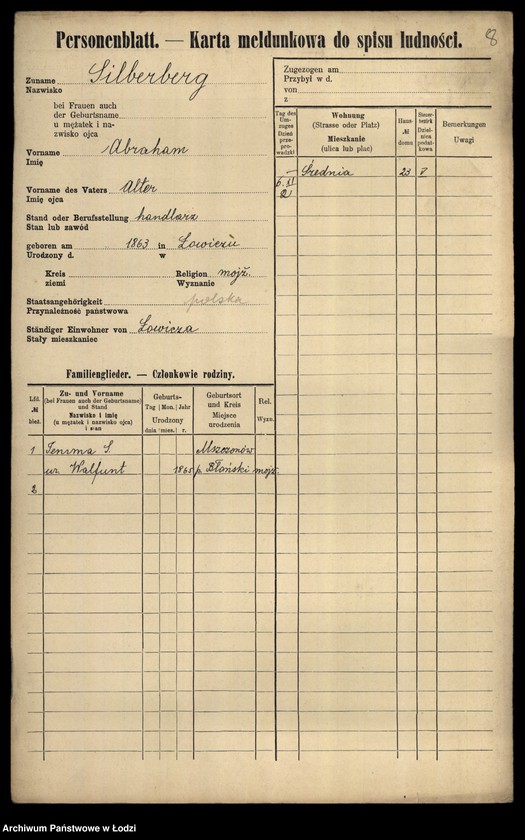 8
Personenblatt. — Karta meldunkowa do spisu ludności.
Zuname Silberberg
Nazwisko
bei Frauen auch
der Geburtsname
u mężatek i na-
zwisko ojca
Vorname Abraham
Imię
Vorname des Vaters Alter
Imię ojca
Stand oder Berufsstellung handlarz
Stan lub zawód
geboren am 1863 in Łowiczu
Urodzony d. w
Kreis Religion mojż.
ziemi Wyznanie
Staatsangehörigkeit polska
Przynależność państwowa
Ständiger Einwohner von Łowicza
Stały mieszkaniec
Familienglieder. — Członkowie rodziny.
Lfd. № bież.
Zu- und Vorname
(bei Frauen auch der Geburtsname)
und Stand
Nazwisko i imię
(u mężatek i nazwisko ojca)
i stan
Geburts-
Tag Mon. Jahr
Urodzony
dnia mies. r.
Geburtsort
und Kreis
Miejsce
urodzenia
Rel.
Wyzn.
1 S. Mszczonów
ur. Walfunt 1865 p. Błoński mojż.
2
Zugezogen am
Przybył w d.
von
z
Tag des
Um-
zuges
Dzień
prze-
pro-
wadzki
Wohnung
(Strasse oder Platz)
Mieszkanie
(ulica lub plac)
Haus-
№
domu
Steuer-
bezirk
Dziel-
nica
podat-
kowa
Bemerkungen
Uwagi
— Średnia 23 V
6. XI
21
Archiwum Państwowe w Łodzi